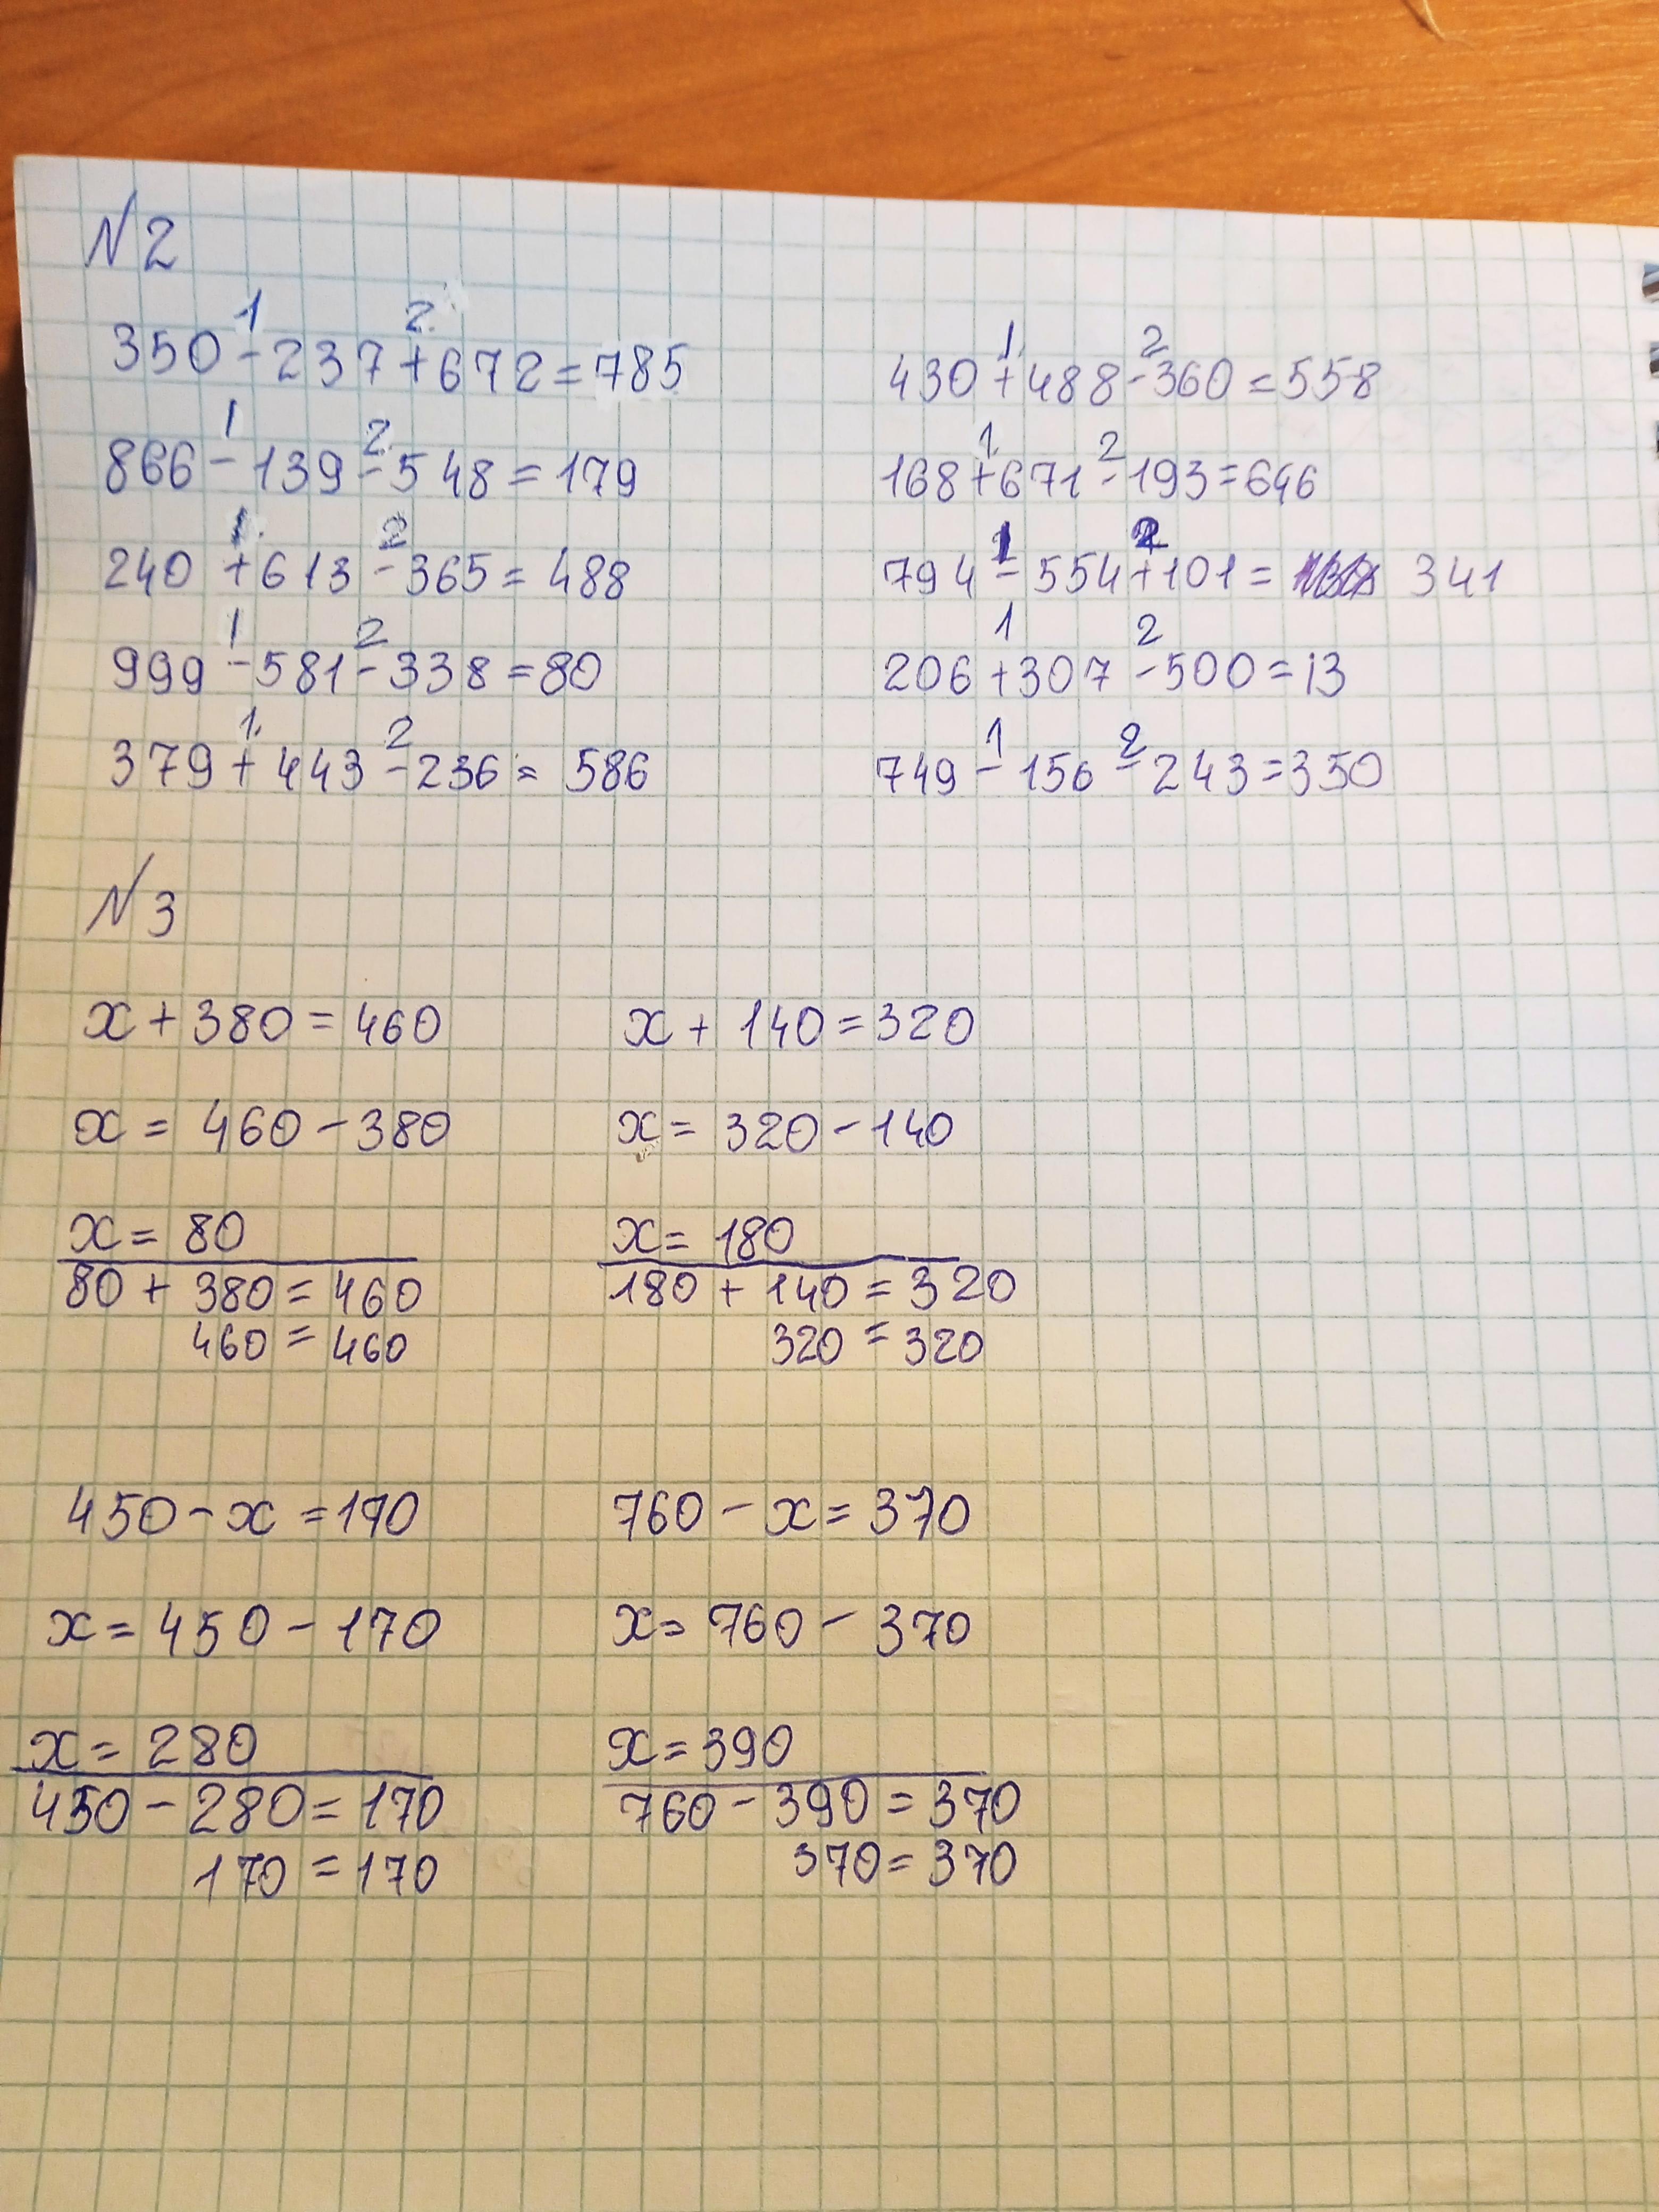 №2
1 2
350-237+672=785
1 2
430+488-360=558
1 2
866-139-548=179
1 2
168+671-193=646
1 2
240+613-365=488
1 2
794-554+101= 341
1 2
999-581-338=80
1 2
206+307-500=13
1 2
379+443-236=586
1 2
749-156-243=350
№3
x+380=460
x+140=320
x=460-380
x=320-140
x=80
x=180
80+380=460
180+140=320
460=460
320=320
450-x=170
760-x=370
x=450-170
x=760-370
x=280
x=390
450-280=170
760-390=370
170=170
370=370